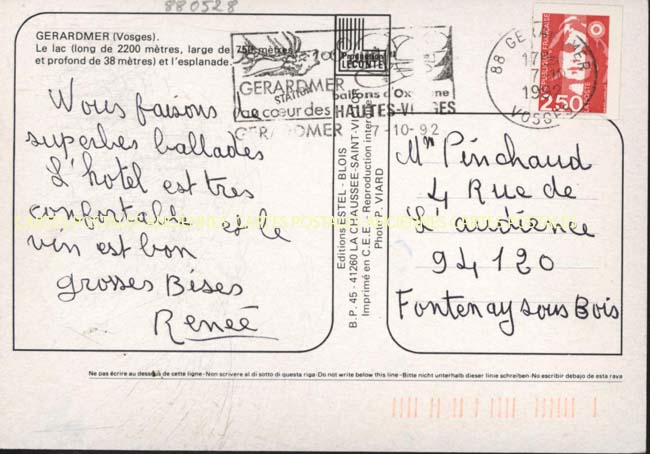 880528
GERARDMER (Vosges).
Le lac (long de 2200 mètres, large de 750 mètres
et profond de 38 mètres) et l'esplanade.
GERARDMER
STATION
Ballons d'Oxygène
au cœur des HAUTES-VOSGES
GERARDMER 7-10-92
LECONTE
88 GERARDMER
17H
7-10
1992
VOSGES
2,50
Nous faisons
superbes ballades
L'hotel est très
confortable et le
vin est bon
grosses Bises
Renée
Editions ESTEL - BLOIS
B.P. 45 - 41260 LA CHAUSSEE-SAINT-VICTOR
Imprimé en C.E.E. - Reproduction interdite
Photo P. VIARD
Mn Pinchaud
4 Rue de
94120
Fontenay sous Bois
Ne pas écrire au dessous de cette ligne - Non scrivere al di sotto di questa riga - Do not write below this line - Bitte nicht unterhalb dieser linie schreiben - No escribir debajo de esta raya